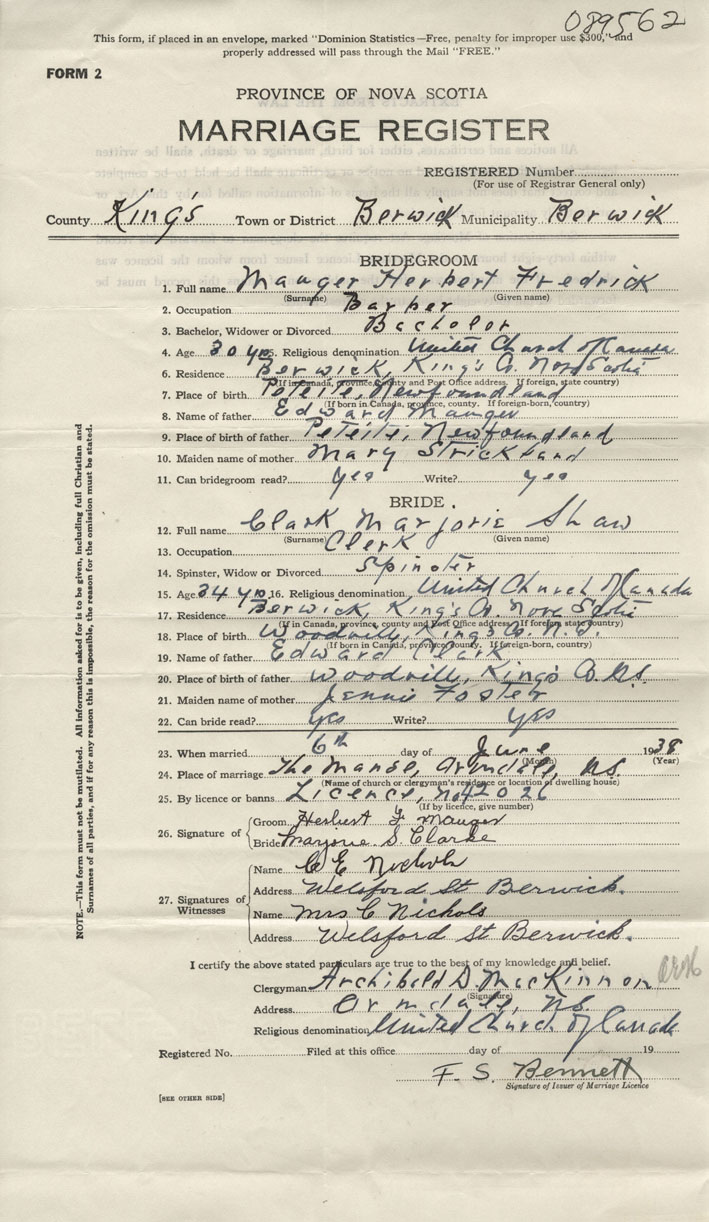 089562
This form, if placed in an envelope, marked "Dominion Statistics—Free, penalty for improper use $300," and
properly addressed will pass through the Mail "FREE."
FORM 2
PROVINCE OF NOVA SCOTIA
MARRIAGE REGISTER
REGISTERED Number
(For use of Registrar General only)
County King's Town or District Berwick Municipality Berwick
BRIDEGROOM
1. Full name Mauger Herbert Fredrick
(Surname) (Given name)
2. Occupation Barber
3. Bachelor, Widower or Divorced Bachelor
4. Age 30 yrs 5. Religious denomination United Church of Canada
6. Residence Berwick, King's Co. Nova Scotia
(If in Canada, province, county and Post Office address. If foreign, state country)
7. Place of birth Peteite, Newfoundland
(If born in Canada, province, county. If foreign-born, country)
8. Name of father Edward Mauger
9. Place of birth of father Peteite, Newfoundland
10. Maiden name of mother Mary Strickland
11. Can bridegroom read? yes Write? yes
BRIDE.
12. Full name Clark Marjorie Shaw
(Surname) (Given name)
13. Occupation Clerk
14. Spinster, Widow or Divorced Spinster
15. Age 34 yrs 16. Religious denomination United Church of Canada
17. Residence Berwick, King's Co. Nova Scotia
(If in Canada, province, county and Post Office address. If foreign state country)
18. Place of birth Woodville, King's Co. N.S.
(If born in Canada, province county. If foreign-born, country)
19. Name of father Edward Clark
20. Place of birth of father Woodville, King's Co. N.S.
21. Maiden name of mother Jennie Foster
22. Can bride read? yes Write? yes
23. When married 6th day of June 1938
(Month) (Year)
24. Place of marriage The Manse, N.S.
(Name of church or clergyman's residence or location of dwelling house)
25. By licence or banns Licence, No 42026
(If by licence, give number)
26. Signature of
Groom Herbert F. Mauger
Bride Marjorie S. Clarke
27. Signatures of Witnesses
Name C E Nichols
Address Welsford St Berwick.
Name Mrs C Nichols
Address Welsford St Berwick.
I certify the above stated particulars are true to the best of my knowledge and belief.
Clergyman Archibald D. MacKinnon
(Signature)
Address Ormdale, N.S.
Religious denomination United Church of Canada
Registered No. Filed at this office day of 19
F. S. Bennett
Signature of Issuer of Marriage Licence
[SEE OTHER SIDE]
NOTE.—This form must not be mutilated. All information asked for is to be given, including full Christian and
Surnames of all parties, and if for any reason this is impossible, the reason for the omission must be stated.